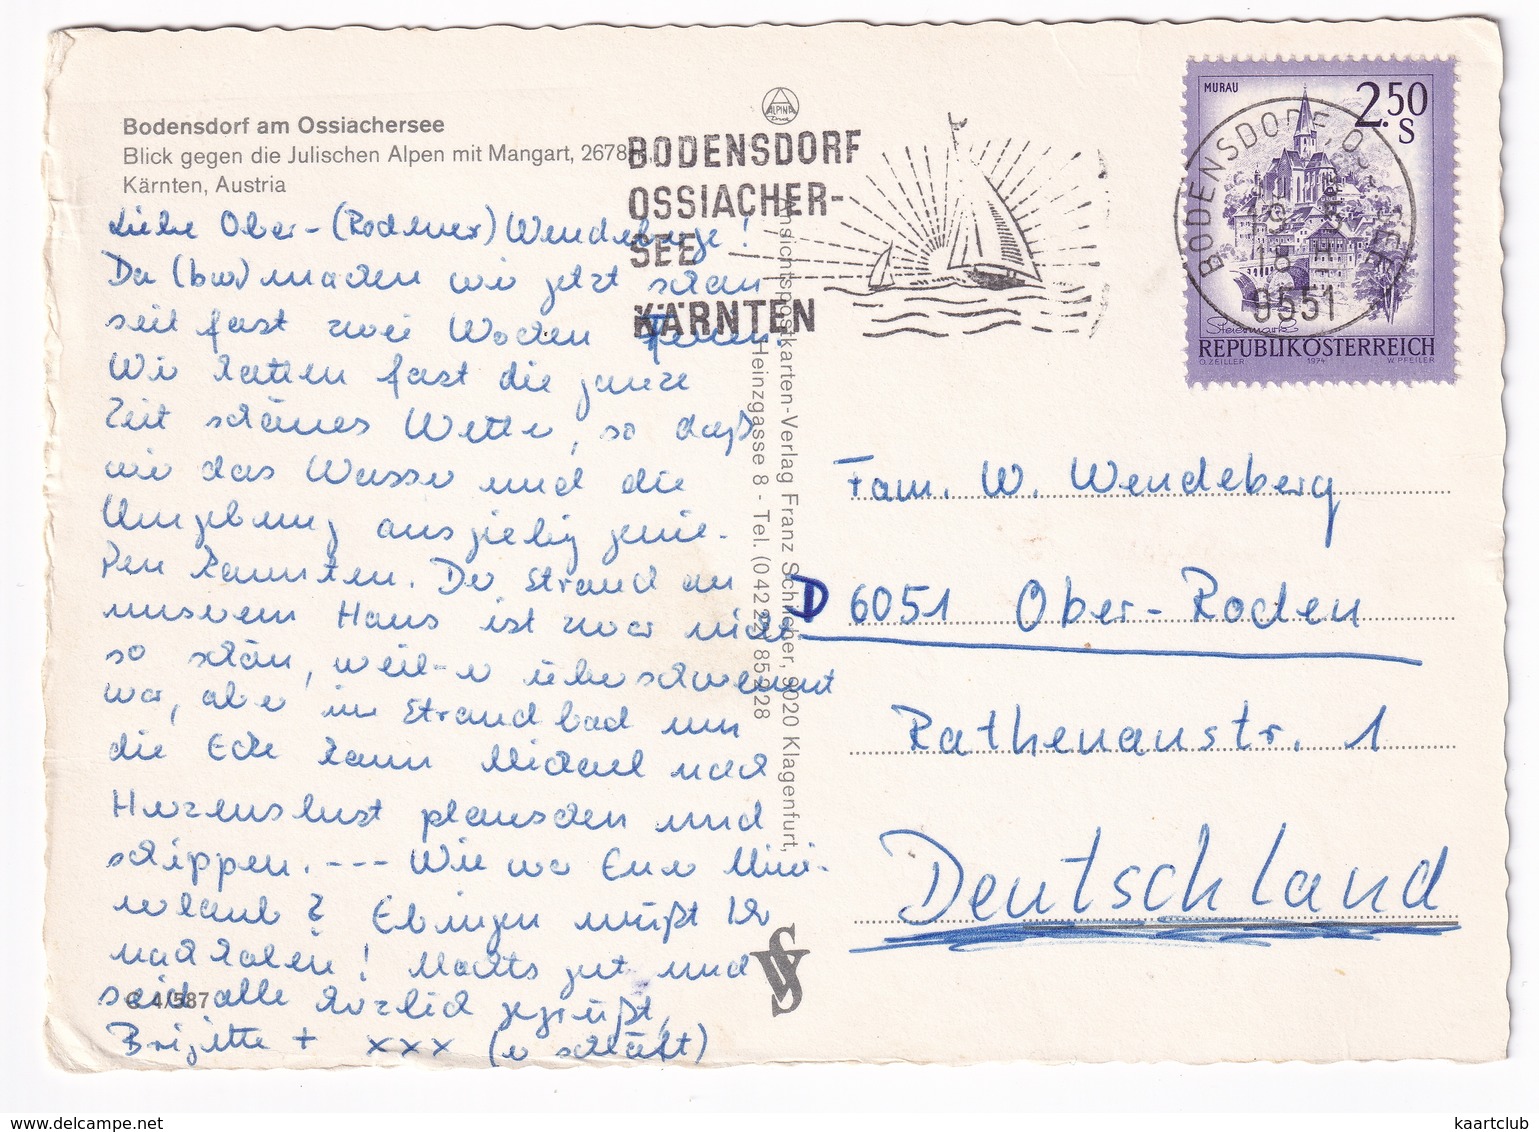 Bodensdorf am Ossiachersee
Blick gegen die Julischen Alpen mit Mangart, 2678
Kärnten, Austria
ALPINA
BODENSDORF
OSSIACHER-
SEE
KÄRNTEN
MURAU
2.50
S
BODENSDORF
18
9551
Steiermark
REPUBLIK ÖSTERREICH
O. ZEILLER 1974 W. PFEILER
Liebe Ober-(Rodener) Wendeberge!
Da machen wir jetzt schon
seit fast zwei Wochen Ferien.
Wir hatten fast die ganze
Zeit schönes Wetter, so daß
wir das Wasser und die
Umgebung ausgiebig genie-
ßen konnten. Der Strand an
unserem Haus ist zwar nicht
so schön, weil er überschwemmt
war, aber im Strandbad um
die Ecke kann Michael nach
Herzenslust planschen und
schippen. --- Wie war Euer Mini-
urlaub? Ebingen müßt Ihr
nachholen! Machts gut und
seid alle herzlich gegrüßt,
Brigitte + xxx (er schläft)
C 4/587
Ansichtspostkarten-Verlag Franz Schilcher, 9020 Klagenfurt,
Heinzgasse 8 - Tel. (04222) 85228
Fam. W. Wendeberg
D 6051 Ober-Roden
Rathenaustr. 1
Deutschland
www.delcampe.net
kaartclub